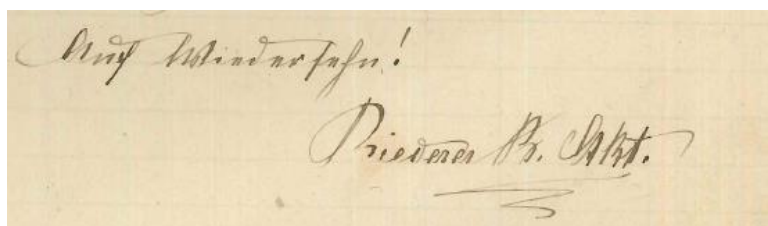 Auf Wiedersehn!
Riederer K. Akt.